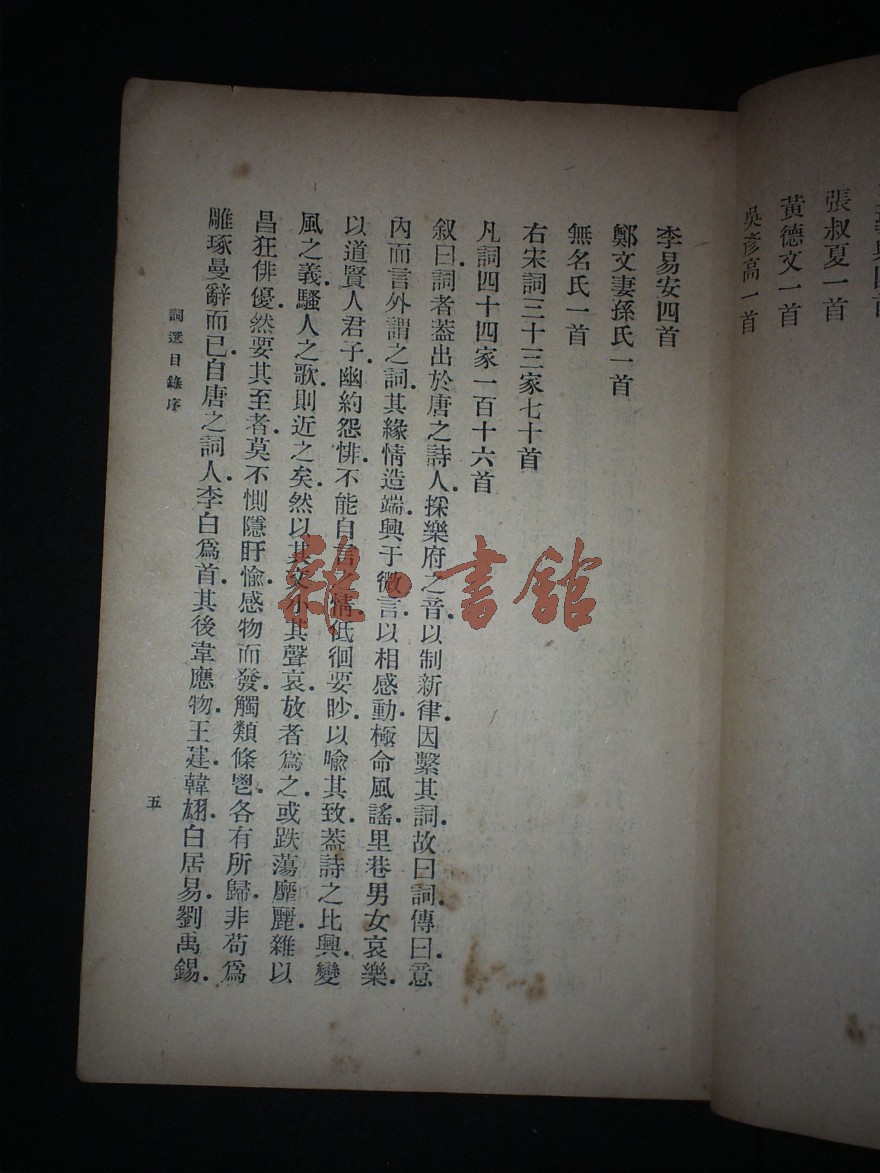 張叔夏一首
黃德文一首
吳彥高一首
李易安四首
鄭文妻孫氏一首
無名氏一首
右宋詞三十三家七十首
凡詞四十四家一百十六首
叙曰詞者葢出於唐之詩人採樂府之音以制新律因繫其詞故曰詞傳曰意
內而言外謂之詞其緣情造端興于微言以相感動極命風謠里巷男女哀樂
以道賢人君子幽約怨悱不能自言之情低徊要眇以喻其致葢詩之比興變
風之義騷人之歌則近之矣然以其文小其聲哀放者爲之或跌蕩靡麗雜以
昌狂俳優然要其至者莫不惻隱盱愉感物而發觸類條鬯各有所歸非苟爲
雕琢曼辭而已自唐之詞人李白爲首其後韋應物王建韓翃白居易劉禹錫
詞選目錄序
五
雜·書館